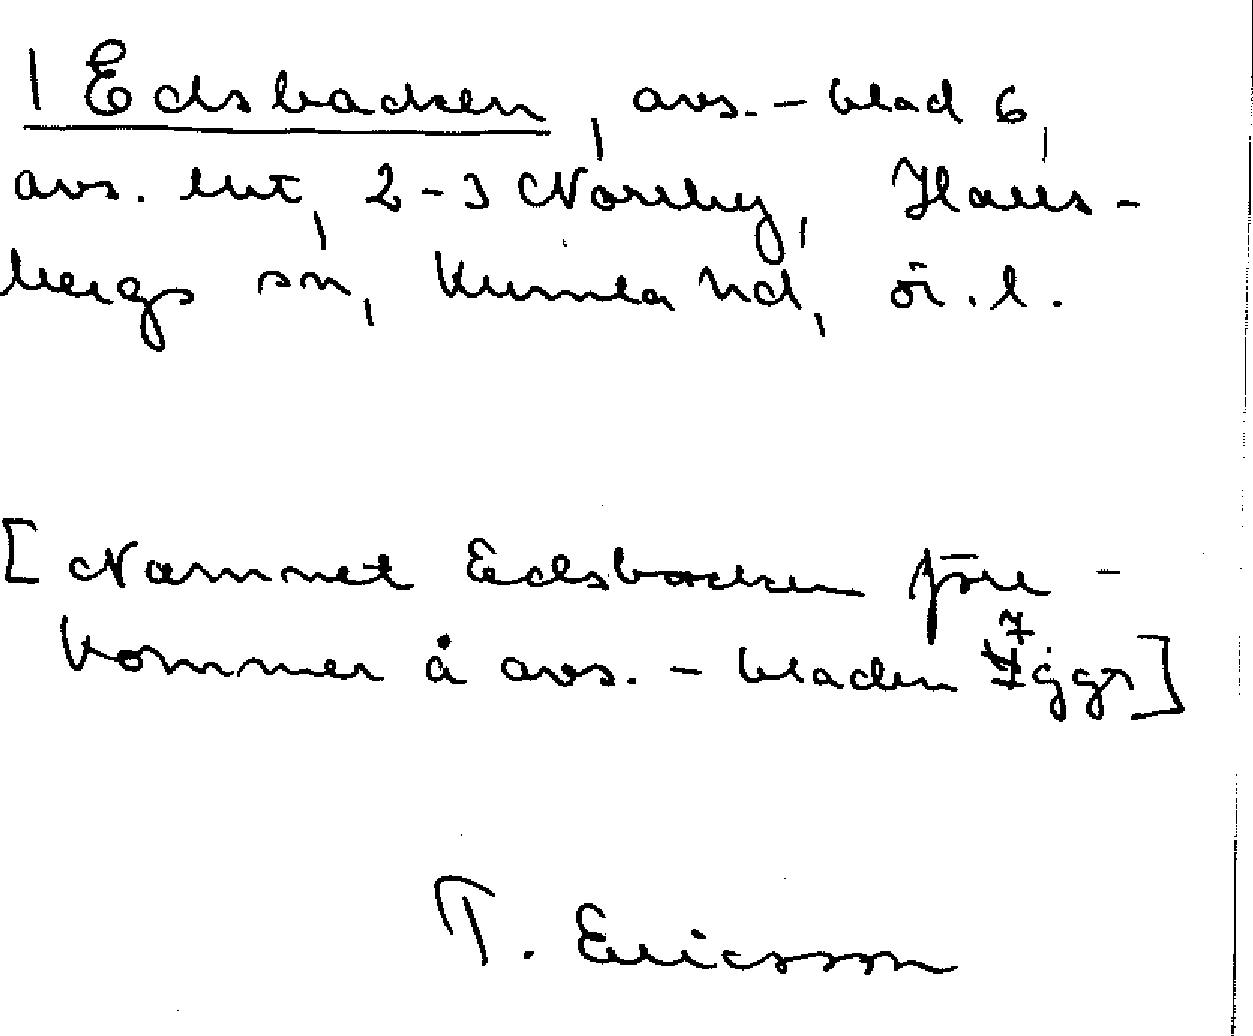 | Edsbacken, avs.-blad 6,
avs. lut, 2-3 Norrby, Halls-
bergs sn, Kumla hd, ör. l.
[Namnet Edsbacken före-
kommer å avs.-bladen 7 ggr]
T. Ericsson